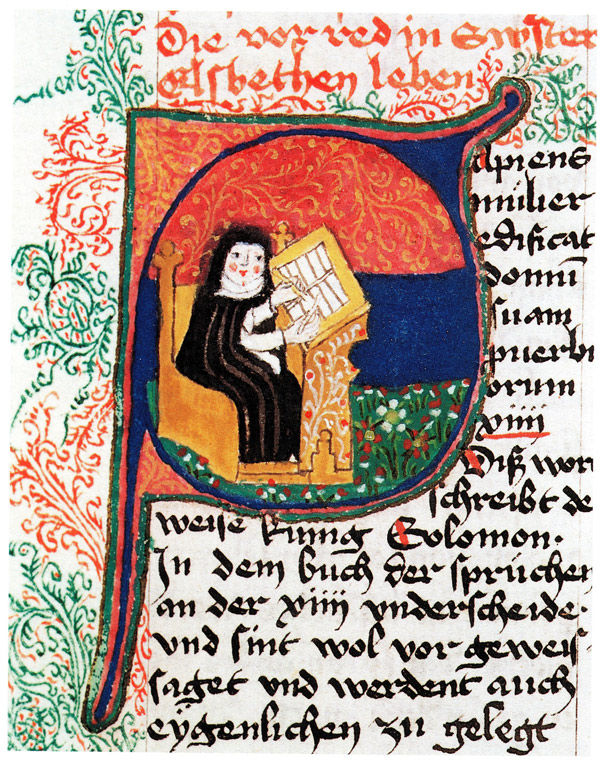 Die vor red in Swster
Elsbethen leben
Sapiens
mulier
edificat
domū
suam
puerbi
orum
xiiii
Diß wort
schreibt de
weise kunig Solomon.
In dem buch der sprüchen
an der xiiii vnderscheide.
vnd sint wol vor geweis
saget vnd werdent auch
eygenlichen zu gelegt